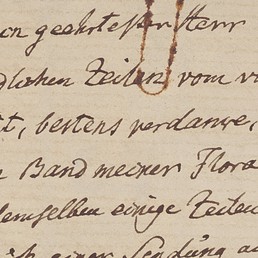 geehrtester Herr
dlichen Zeilen vom
it, bestens verdanke,
Band meiner Flora
demselben einige Zeilen
einer Sendung